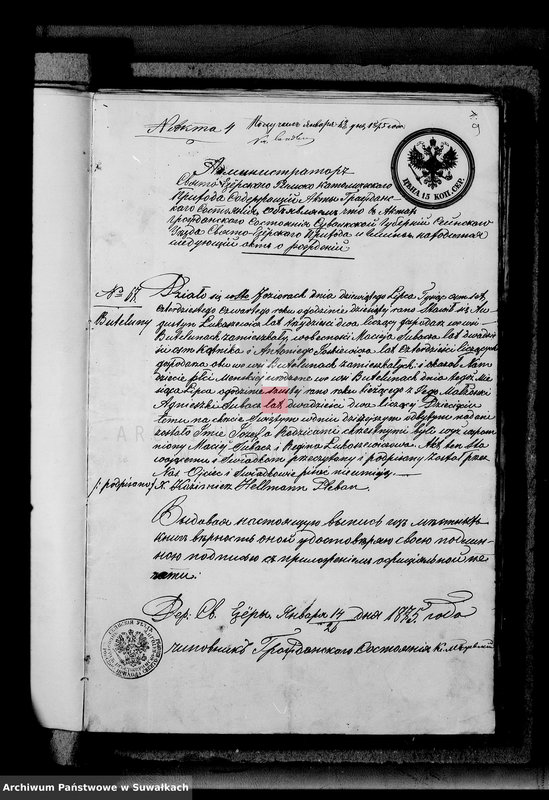 № 9
Января дня 1875 года
Администраторъ
Свято-Езёрского Римско Католического
Прихода Содержащій Акты Граждан-
ского Состоянія объявляетъ что въ Актахъ
Гражданского Состоянія Сувалкской Губерніи Сейнского
Уѣзда Свято-Езёрского Прихода
слѣдующій актъ о рожденіи
ЦѢНА 15 КОП. СЕР.
№ 67.
Buteluny
Działo się Jeziorach dnia dziewiątego Lipca Tysiąc
czterdziestego czwartego roku o godzinie dziesiątej rano Stawił się Au-
gustyn Lukasiewicz lat trzydzieści dwa liczący gospodarz we wsi
Butelunach zamieszkały, w obecności Macieja Subacza lat dwadzie-
ścia i Antoniego lat czterdzieści liczących
gospodarza obu we wsi Butelunach zamieszkałych i okazał Nam
dziecię płci Męskiej urodzone we wsi Butelunach dnia Mie-
siąca Lipca o godzinie rano roku bieżącego z Jego Małżonki
Agnieszki Subacz lat dwadzieścia dwa liczącej Dziecięciu
temu na chrzcie Świętym w dniu dzisiejszym odbytym nadane
zostało Imie Józef a Rodzicami chrzestnymi byli wyż wspom-
niony Maciej Subacz i Regina Lukasiewiczowa Akt ten Sta-
wającemu i Świadkom przeczytany i podpisany został przez
Nas Ojciec i Świadkowie pisać nieumieją.
/: podpisano/ X. Kazimierz Hellmann Pleban.
Выдавая настоящую выпись изъ мѣтныхъ
книгъ вѣрность оной удостовѣряю своею подпи-
сью съ приложеніемъ оффиціальной пе-
чати:
Дер: Св. Езёры Января 14/26 дня 1875 года
Чиновникъ Гражданского Состоянія
Archiwum Państwowe w Suwałkach